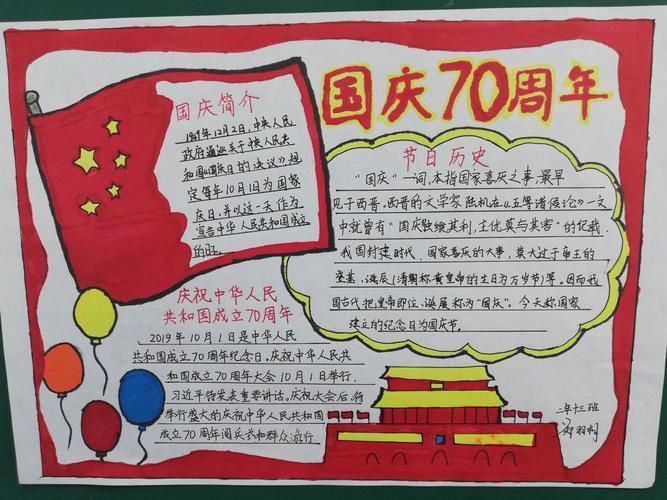 国庆70周年
国庆简介
1949年12月2日,中央人民
政府通过关于中央人民共
和国《国庆日的决议》规
定每年10月1日为国家
庆日,并以这一天作为
宣告中华人民共和国成立
的日
节日历史
"国庆"一词,本指国家喜庆之事,最早
见于西晋。西晋的文学家陆机在《五等诸侯论》一文
中就曾有"国庆独飨其利,主忧莫与其害"的纪载、
我国封建时代、国家喜庆的大事,莫大过于帝王的
登基、诞辰(清朝称皇帝的生日为万岁节)等。因而我
国古代把皇帝即位、诞辰称为"国庆"。今天称国家
建立的纪念日为国庆节。
庆祝中华人民
共和国成立70周年
2019年10月1日是中华人民
共和国成立70周年纪念日。庆祝中华人民共
和国成立70周年大会10月1日举行,
习近平将发表重要讲话。庆祝大会后,将
举行盛大的庆祝中华人民共和国
成立70周年阅兵式和群众游行
二年十三班